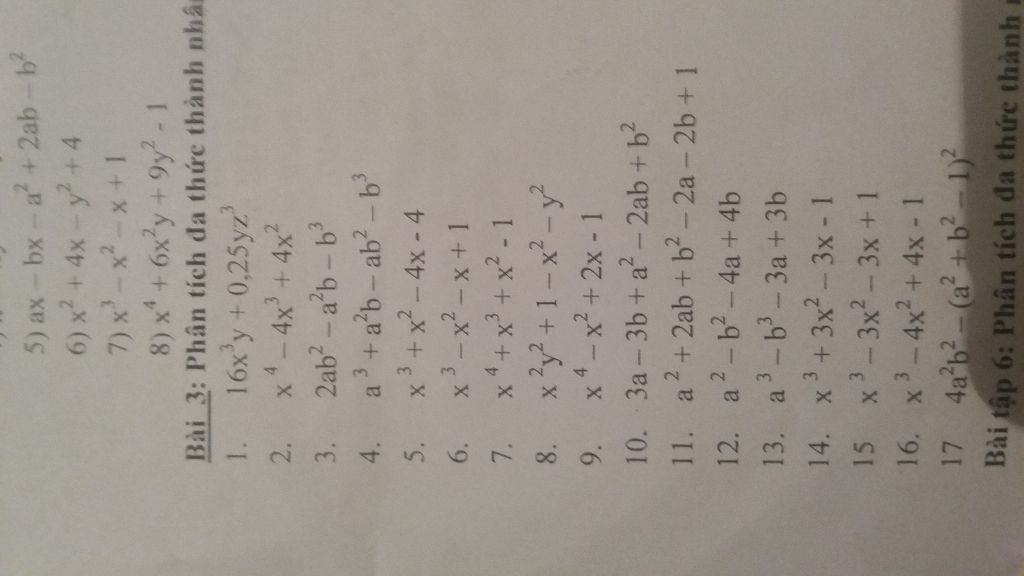 5) ax – bx – a² + 2ab – b²
6) x² + 4x – y² + 4
7) x³ – x² – x + 1
8) x⁴ + 6x²y + 9y² - 1
Bài 3: Phân tích đa thức thành
1. 16x³y + 0,25yz³
2. x⁴ – 4x³ + 4x²
3. 2ab² – a²b – b³
4. a³ + a²b – ab² – b³
5. x³ + x² – 4x - 4
6. x³ – x² – x + 1
7. x⁴ + x³ + x² - 1
8. x²y² + 1 – x² – y²
9. x⁴ – x² + 2x - 1
10. 3a – 3b + a² – 2ab + b²
11. a² + 2ab + b² – 2a – 2b + 1
12. a² – b² – 4a + 4b
13. a³ – b³ – 3a + 3b
14. x³ + 3x² – 3x - 1
15 x³ – 3x² – 3x + 1
16. x³ – 4x² + 4x - 1
17 4a²b² – (a² + b² – 1)²
Bài tập 6: Phân tích đa thức thành